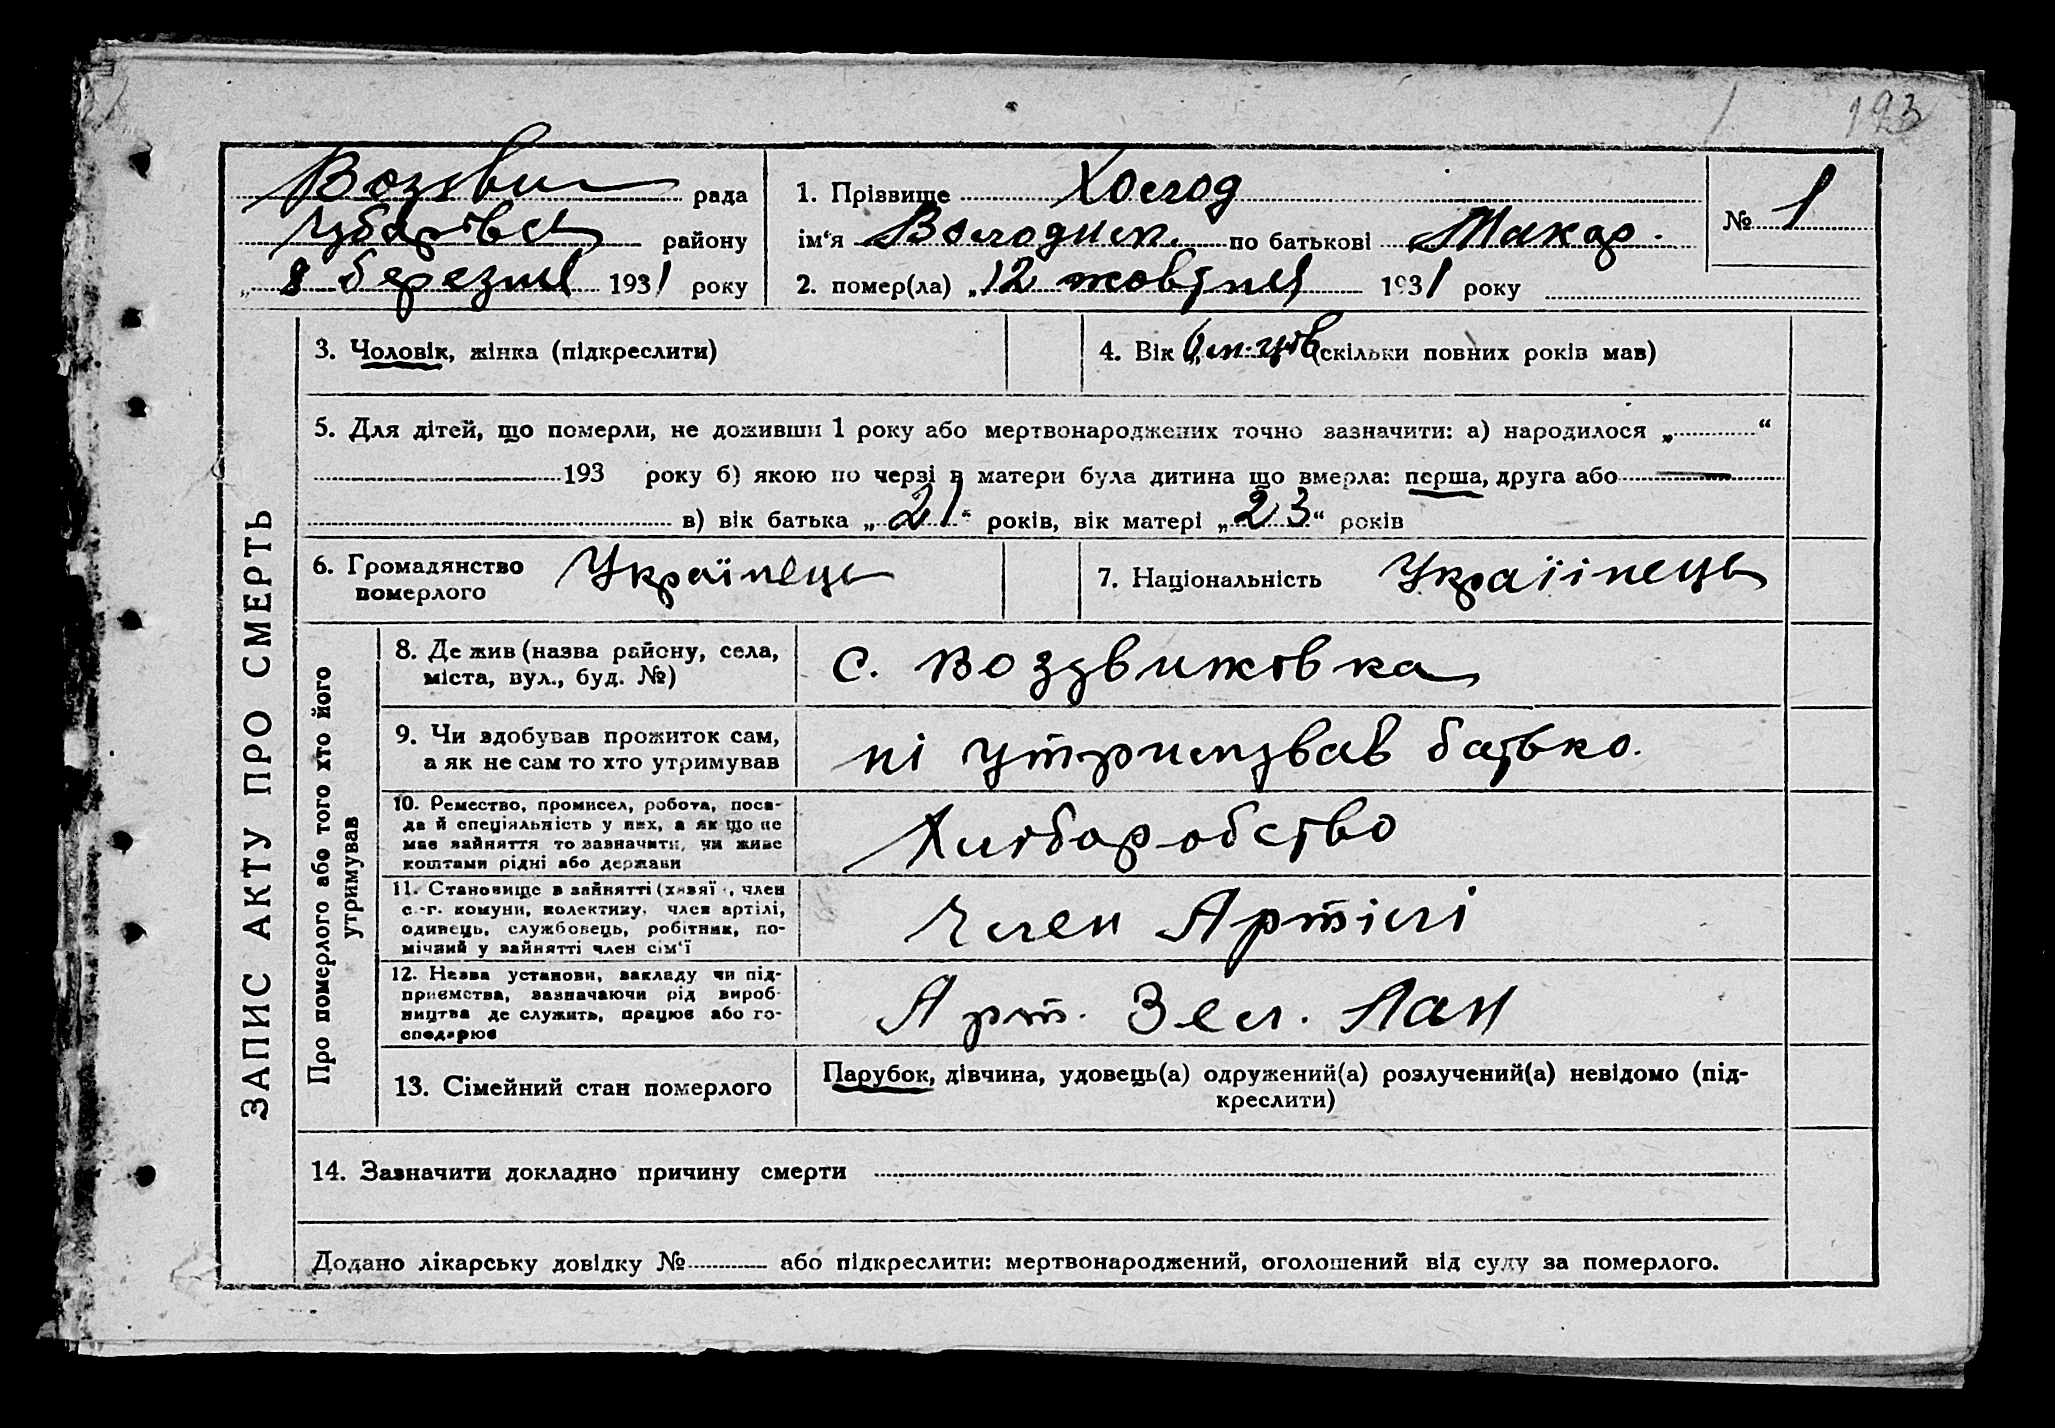 193
Воздви рада
Чубарівсь району
„ 8 березня 1931 року
1. Прізвище Холод
ім‘я Володим. по батькові Макар.
2. помер(ла) „ 12 жовтня 1931 року
№ 1
3. Чоловік, жінка (підкреслити)
4. Вік 6 м-ців (скільки повних років мав)
5. Для дітей, що померли, не доживши 1 року або мертвонароджених точно зазначити: а) народилося „ “
193 року б) якою по черзі в матери була дитина що вмерла: перша, друга або
в) вік батька „ 21 “ років, вік матері „ 23 “ років
6. Громадянство
померлого
Українець
7. Національність Украіінець
ЗАПИС АКТУ ПРО СМЕРТЬ
Про померлого або того хто його
утримував
8. Де жив (назва району, села,
міста, вул., буд. №)
с. Воздвижівка
9. Чи здобував прожиток сам,
а як не сам то хто утримував
ні утримував батько.
10. Ремество, промисел, робота, поса-
да й спеціяльність у них, а як що не
має зайняття то зазначити, чи живе
коштами рідні або держави
Хліборобство
11. Становище в зайнятті (хазяї , член
с.-г. комуни, колективу, член артілі,
одивець, службовець, робітник, по-
мічний у зайнятті член сім‘ї
Член Артілі
12. Назва установи, закладу чи під-
приємства, зазначаючи рід вироб-
ництва де служить, працює або го-
сподарює
Арт. Зел. Лан
13. Сімейний стан померлого
Парубок, дівчина, удовець(а) одружений(а) розлучений(а) невідомо (під-
креслити)
14. Зазначити докладно причину смерти
Додано лікарську довідку № або підкреслити: мертвонароджений, оголошений від суду за померлого.